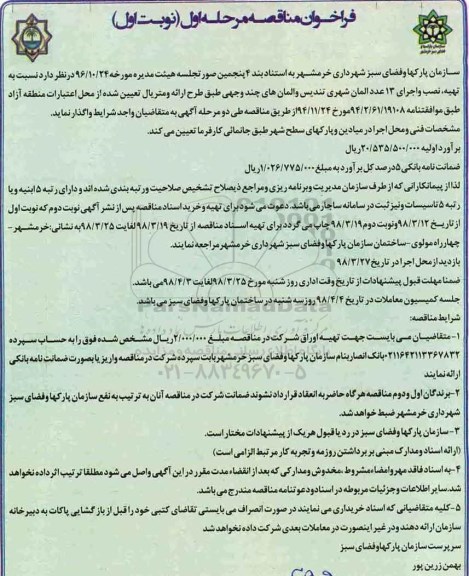 فراخوان مناقصه مرحله اول (نوبت اول)
سازمان پارکها وفضای سبز شهرداری خرمشهر به استناد بند ۴ پنجمین صورتجلسه هیئت مدیره مورخه ۹۶/۱۰/۲۴ درنظر دارد نسبت به
تهیه، نصب واجرای ۱۳ عدد المان شهری تندیس والمان های چند وجهی طبق طرح ارائه ومتریال تعیین شده از محل اعتبارات منطقه آزاد
طبق موافقتنامه ۹۴/۲/۶۱/۱۹۱۰۸ مورخ ۹۴/۱۱/۲۴ از طریق مناقصه طی دو مرحله آگهی به متقاضیان واجد شرایط واگذار نماید.
مشخصات فنی ومحل اجرا در میادین وپارکهای سطح شهر طبق جانمائی کارفرما تعیین می کند.
برآورد اولیه ۲۰/۵۳۵/۵۰۰/۰۰۰ ریال
ضمانت نامه بانکی ۵ درصد کل برآورد به مبلغ ۱/۰۲۶/۷۷۵/۰۰۰ ریال
لذا از پیمانکارانی که از طرف سازمان مدیریت وبرنامه ریزی ومراجع ذیصلاح تشخیص صلاحیت ورتبه بندی شده اند و دارای رتبه ۵ ابنیه ویا
رتبه ۵ تاسیسات ونیز ثبت در سامانه ساجار می باشد. دعوت می شود برای تهیه وخرید اسناد مناقصه پس از نشر آگهی نوبت دوم که نوبت اول
از تاریخ ۹۸/۳/۱۲ ونوبت دوم ۹۸/۳/۱۹ چاپ می گردد برای تهیه اسناد مناقصه از تاریخ ۹۸/۳/۱۹ لغایت ۹۸/۳/۲۵ به نشانی: خرمشهر -
چهارراه مولوی - ساختمان سازمان پارکها وفضای سبز شهرداری خرمشهر مراجعه نمایند.
بازدید از محل اجرا در تاریخ ۹۸/۳/۲۷
ضمنا مهلت قبول پیشنهادات از تاریخ وقت اداری روز شنبه مورخ ۹۸/۳/۲۵ لغایت ۹۸/۴/۳ می باشد.
جلسه کمیسیون معاملات در تاریخ ۹۸/۴/۴ روز سه شنبه در ساختمان پارکها وفضای سبز می باشد.
شرایط مناقصه:
۱- متقاضیان می بایست جهت تهیه اوراق شرکت در مناقصه مبلغ ۲/۰۰۰/۰۰۰ ریال مشخص شده فوق را به حساب سپرده
۰۲۱۱۶۴۲۱۱۳۳۶۷۸۳۲ بانک انصار بنام سازمان پارکها وفضای سبز خرمشهر بابت سپرده شرکت در مناقصه واریز یا بصورت ضمانت نامه بانکی
ارائه نمایند
۲- برندگان اول ودوم مناقصه هرگاه حاضر به انعقاد قرارداد نشوند ضمانت شرکت در مناقصه آنان به ترتیب به نفع سازمان پارکها وفضای سبز
شهرداری خرمشهر ضبط خواهد شد.
۳- سازمان پارکها وفضای سبز در رد یا قبول هریک از پیشنهادات مختار است.
(ارائه اسناد ومدارک مبنی بر برداشتن روزمه وتجربه کار مرتبط الزامی است)
۴- به اسناد فاقد مهر وامضاء مشروط، مخدوش ومدارکی که بعد از انقضاء مدت مقرر در این آگهی واصل می شود مطلقا ترتیب اثر داده نخواهد
شد. سایر اطلاعات وجزئیات مربوطه در اسناد ودعوتنامه مناقصه مندرج می باشد.
۵- کلیه متقاضیانی که اسناد خریداری می نمایند در صورت انصراف می بایستی تقاضای کتبی خود را قبل از باز گشایی پاکات به دبیرخانه
سازمان ارائه دهند ودر غیر اینصورت در معاملات بعدی شرکت داده نخواهد شد
سرپرست سازمان پارکها وفضای سبز
بهمن زرین پور
ParsNamadData
۰۲۱-۸۸۳۴۹۶۷۰-۵